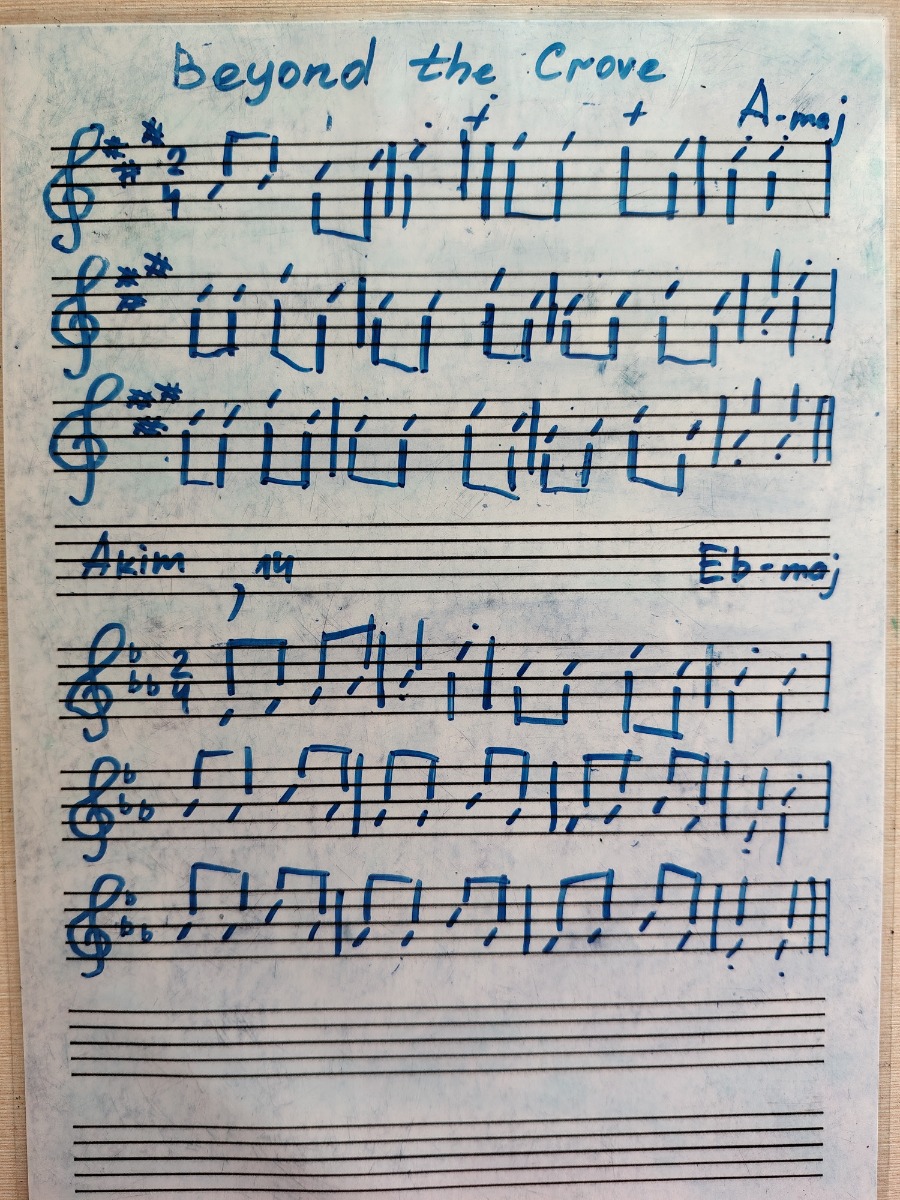 Beyond the Crove
A-maj
2
4
Akim, 14
Eb-maj
2
4